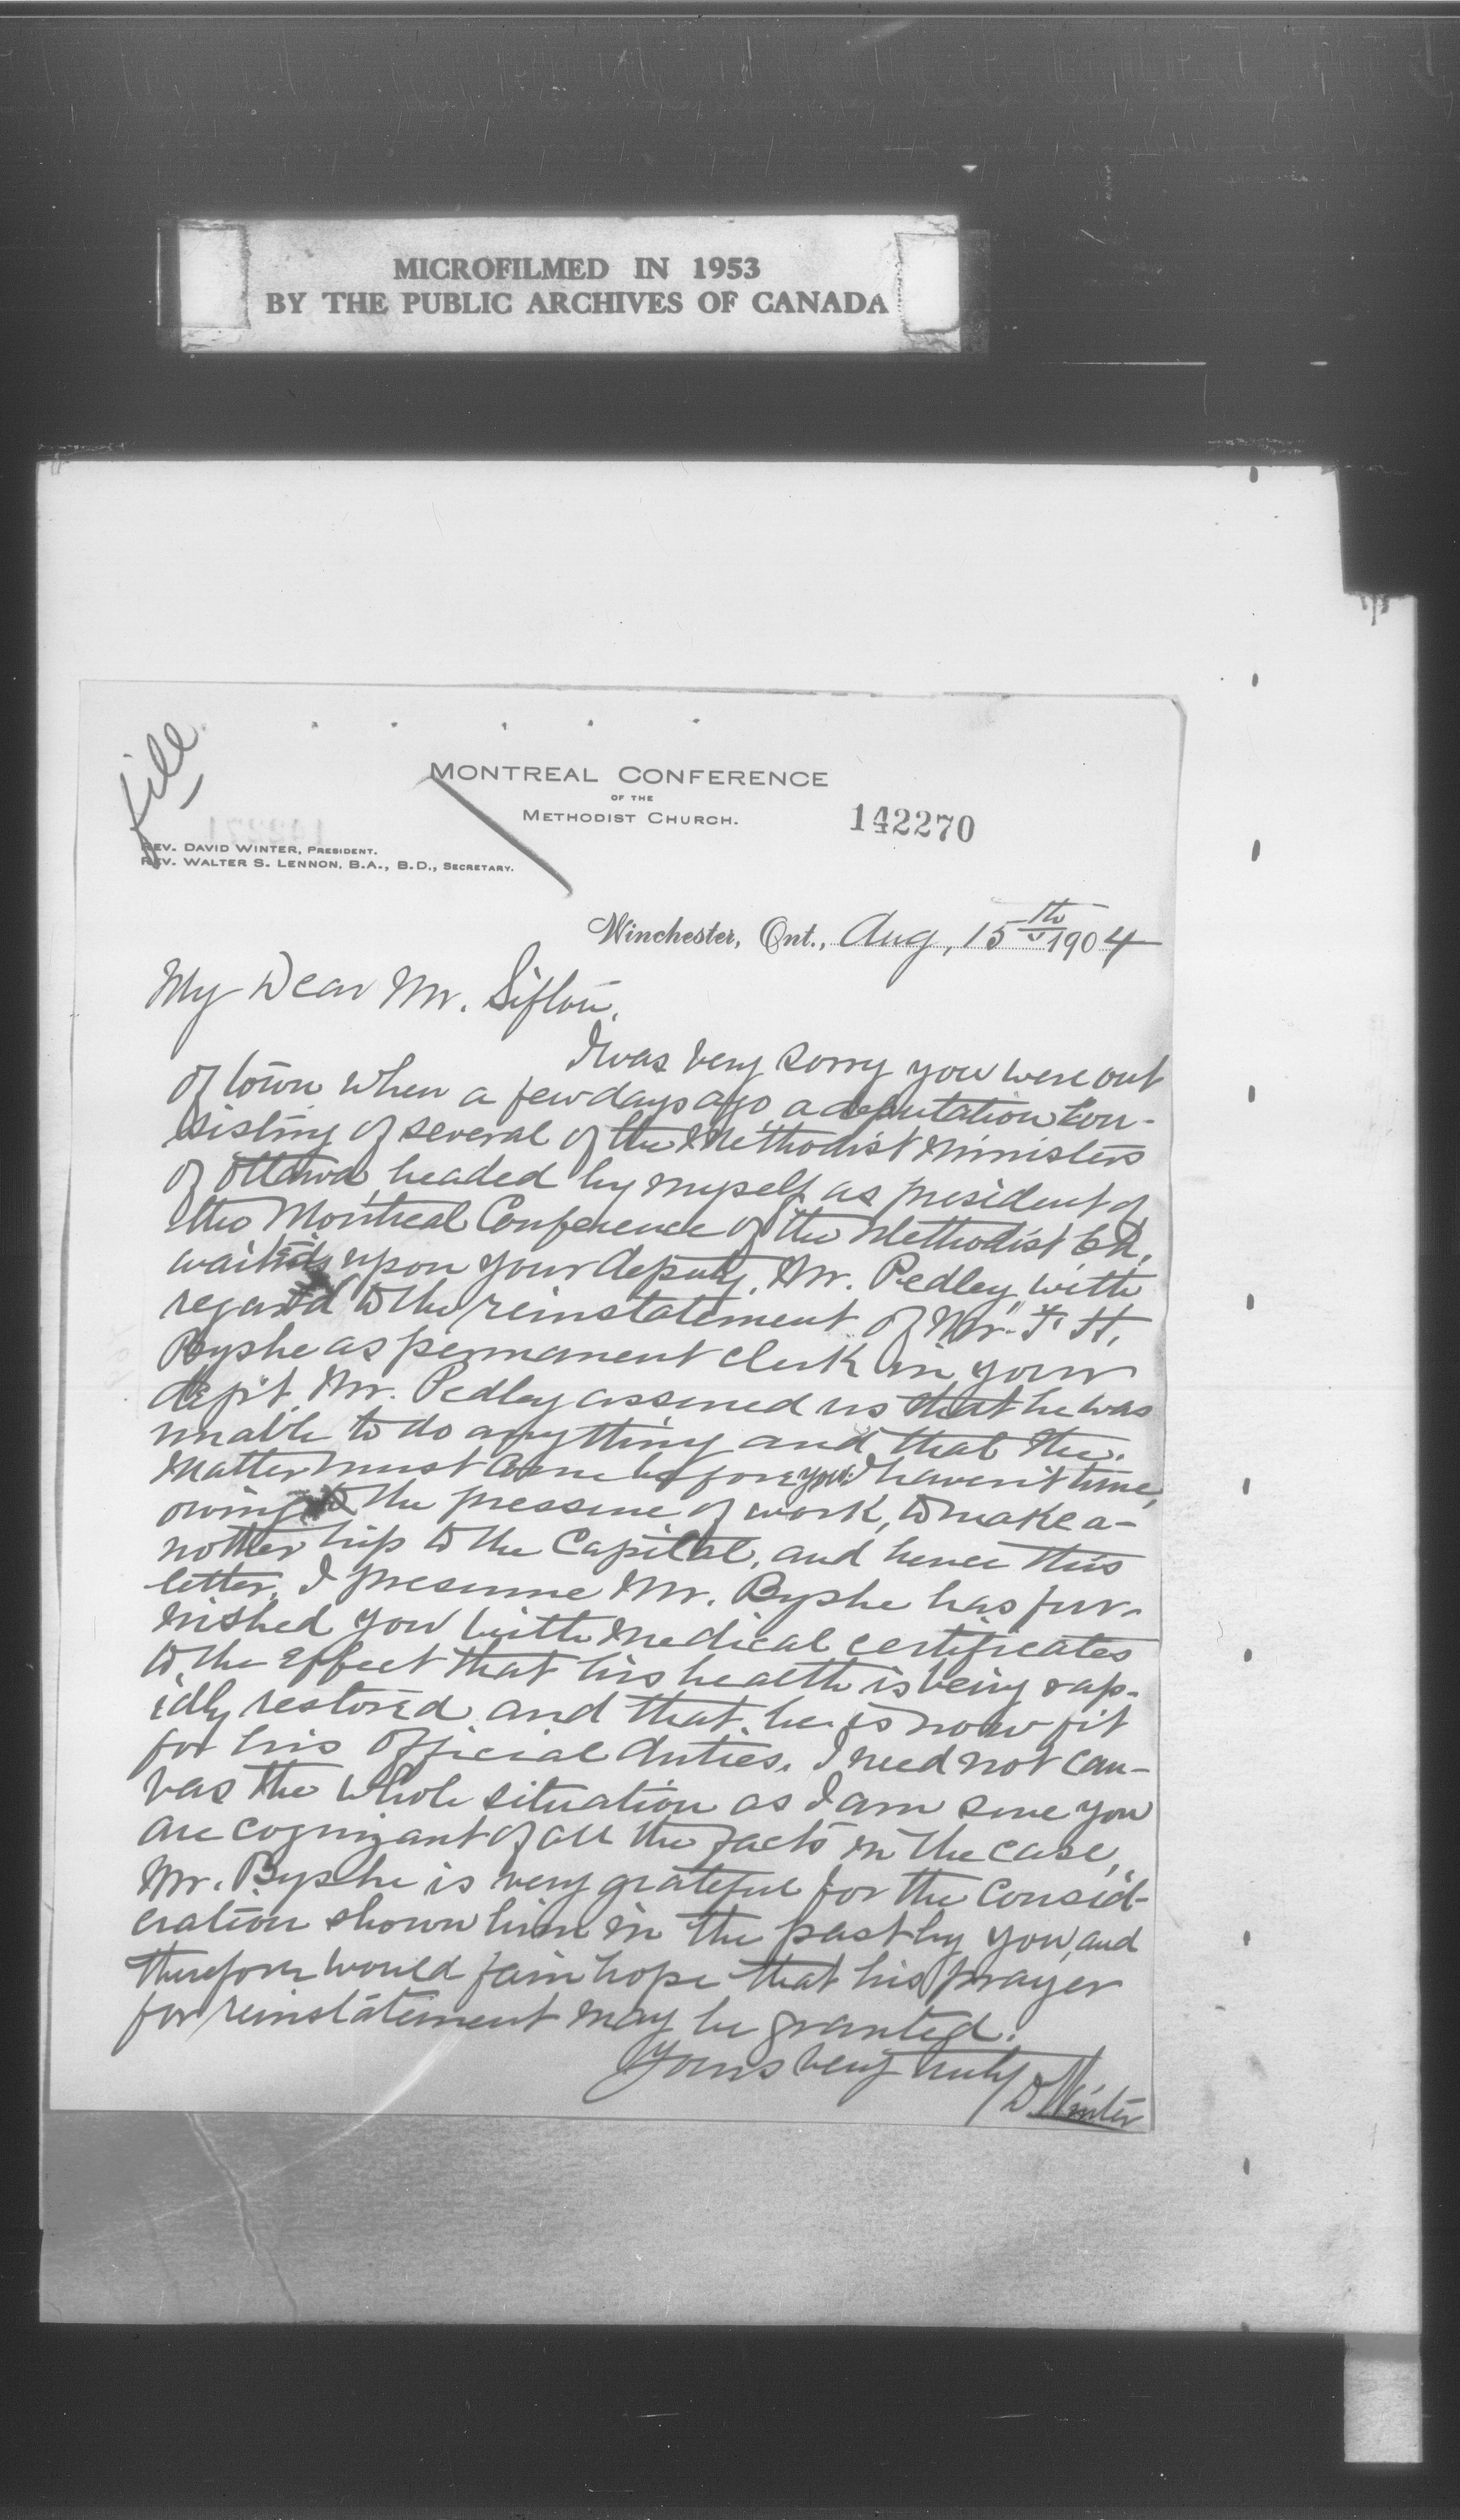 MICROFILMED IN 1953
BY THE PUBLIC ARCHIVES OF CANADA
file
MONTREAL CONFERENCE
OF THE
METHODIST CHURCH.
142270
REV. DAVID WINTER, PRESIDENT.
REV. WALTER S. LENNON, B.A., B.D., SECRETARY.
Winchester, Ont., Aug, 15th 1904
My Dear Mr. Sifton,
I was very sorry you were out
of town when a few days ago a deputation con-
sisting of several of the Methodist Ministers
of Ottawa, headed by myself as president of
the Montreal Conference of the Methodist Ch.
waited upon your deputy, Mr. Pedley, with
regard to the reinstatement of Mr. F. H.
Byshe as permanent clerk in your
dept. Mr. Pedley assured us that he was
unable to do anything and that the
matter must come before you. I haven't time,
owing to the pressure of work, to make a-
nother trip to the Capital, and hence this
letter. I presume Mr. Byshe has fur-
nished you with medical certificates
to the effect that his health is being rap-
idly restored and that he is now fit
for his official duties. I need not can-
vas the whole situation as I am sure you
are cognizant of all the facts in the case,
Mr. Byshe is very grateful for the consid-
eration shown him in the past by you, and
therefore would fain hope that his prayer
for reinstatement may be granted.
Yours very truly
D Winter